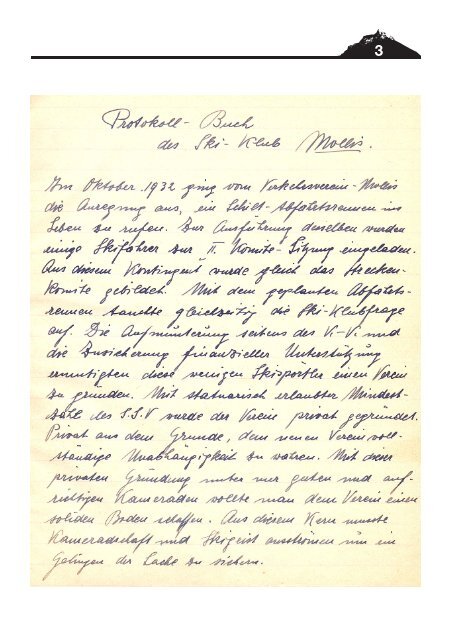 3
Protokoll-Buch
des Ski-Klub Mollis.
Im Oktober 1932 ging vom Verkehrsverein-Mollis
die Anregung aus, ein Schilt-Abfahrtsrennen ins
Leben zu rufen. Zur Ausführung desselben wurden
einige Skifahrer zur II. Komite-Sitzung eingeladen.
Aus diesem Kontingent wurde gleich das Strecken-
komite gebildet. Mit dem geplanten Abfahrts-
rennen tauchte gleichzeitig die Ski-Klubfrage
auf. Die Aufmunterung seitens des V.-V. und
die Zusicherung finanzieller Unterstützung
ermutigten diese wenigen Skisportler einen Verein
zu gründen. Mit statuarisch erlaubter Mindest-
zahl des S.S.V wurde der Verein privat gegründet.
Privat aus dem Grunde, dem neuen Verein voll-
ständige Unabhängigkeit zu wahren. Mit dieser
privaten Gründung unter nur guten und auf-
richtigen Kameraden wollte man dem Verein einen
soliden Boden schaffen. Aus diesem Kern musste
Kameradschaft und Skigeist ausströmen um ein
Gelingen der Sache zu sichern.